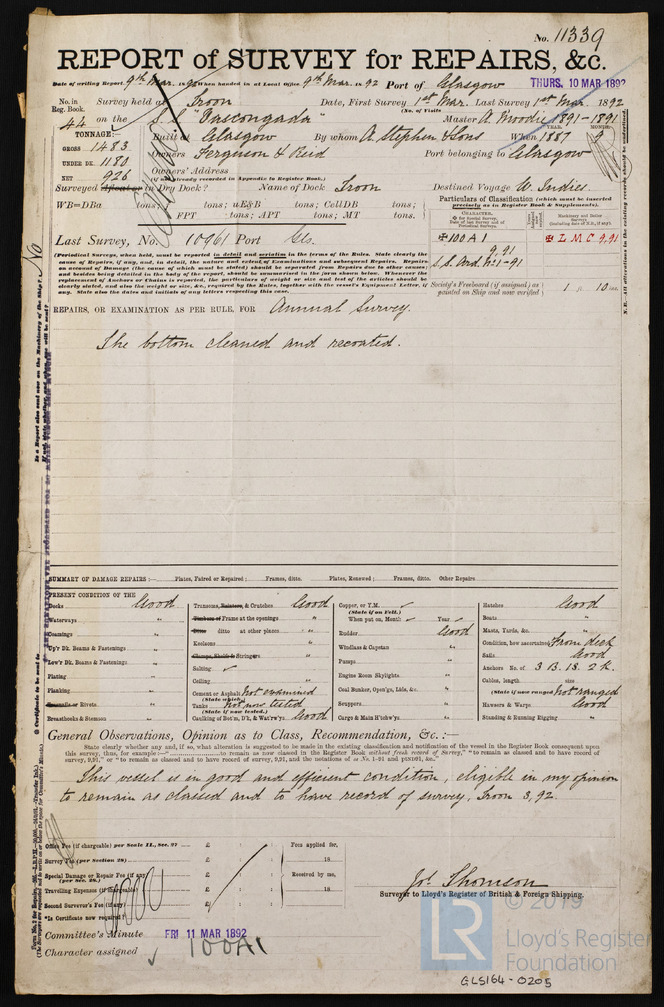 No. 11339
REPORT of SURVEY for REPAIRS, &c.
Date of writing Report 9th Mar. 1892 When handed in at Local Office 9th Mar. 1892 Port of Glasgow
THURS. 10 MAR 1892
No. in Reg. Book. Survey held at Troon Date, First Survey 1st Mar. Last Survey 1st Mar. 1892
(No. of Visits
44 on the S.S. "Vascongada" Master A. Moodie 1891-1891
TONNAGE: Built at Glasgow By whom A. Stephen & Sons When 1887
YEAR. MONTH.
GROSS 1483 Owners Ferguson & Reid Port belonging to Glasgow
UNDER DK. 1180
NET 926 Owners' Address
(if not already recorded in Appendix to Register Book.)
Surveyed Afloat or in Dry Dock? Name of Dock Troon Destined Voyage W. Indies.
WB=DBa tons; f tons; uE&B tons; CellDB tons;
FPT tons; APT tons; MT tons.
Particulars of Classification (which must be inserted precisely as in Register Book & Supplements).
CHARACTER.
✠ 100 A 1
9,91
S.S. Ard. No. 1-91
✠ L M C 9,91
Last Survey, No. 10961 Port Gls.
(Periodical Surveys, when held, must be reported in detail and seriatim in the terms of the Rules. State clearly the cause of Repairs, if any, and, in detail, the nature and extent of Examinations and subsequent Repairs. Repairs on account of Damage (the cause of which must be stated) should be separated from Repairs due to other causes;
Society's Freeboard (if assigned) as painted on Ship and now verified 1 ft. 10 ins.
REPAIRS, OR EXAMINATION AS PER RULE, FOR Annual Survey.
The bottom cleaned and recoated.
SUMMARY OF DAMAGE REPAIRS :— Plates, Faired or Repaired ; Frames, ditto. Plates, Renewed ; Frames, ditto. Other Repairs
PRESENT CONDITION OF THE
Decks Good
Waterways "
Coamings "
Up'r Dk. Beams & Fastenings "
Low'r Dk. Beams & Fastenings "
Plating "
Planking "
Treenails or Rivets. "
Breasthooks & Stemson "
Transoms, Pointers, & Crutches Good
Timbers or Frame at the openings "
Ditto ditto at other places "
Keelsons "
Clamps, Shelfs & Stringers "
Salting ✓
Ceiling "
Cement or Asphalt Not examined
(State which.)
Tanks Not now tested
(State if now tested.)
Caulking of Bot'm, D'k, & Wat'rw'ys Good
Copper, or Y.M. ✓
(State if on Felt.)
When put on, Month ✓ Year ✓
Rudder Good
Windlass & Capstan "
Pumps "
Engine Room Skylights "
Coal Bunker, Open'gs, Lids, &c. "
Scuppers "
Cargo & Main H'tchw'ys "
Hatches Good
Boats "
Masts, Yards, &c. "
Condition, how ascertained From deck
Sails Good
Anchors No. of 3 B. 1 S. 2 K.
Cables, length size
(State if now ranged) Not ranged
Hawsers & Warps Good
Standing & Running Rigging "
General Observations, Opinion as to Class, Recommendation, &c. :—
State clearly whether any and, if so, what alteration is suggested to be made in the existing classification and notification of the vessel in the Register Book consequent upon this survey, thus, for example :—" to remain as now classed in the Register Book without fresh record of Survey," "to remain as classed and to have record of survey, 9,91," or "to remain as classed and to have record of survey, 9,91, and the notations of ss No. 1-91 and ptNDB91, &c."
This vessel is in good and efficient condition, eligible in my opinion
to remain as classed and to have record of survey, Troon 3,92.
Office Fee (if chargeable) per Scale II., Sec. 27 £ : : Fees applied for,
Survey Fee (per Section 28) £ : : 18
Special Damage or Repair Fee (if any) (per Sec. 28.) £ : : Received by me,
Travelling Expenses (if chargeable) £ : : 18
Second Surveyor's Fee (if any) £ : :
*Is Certificate now required?
Jas. Thomson
Surveyor to Lloyd's Register of British & Foreign Shipping.
Committee's Minute FRI 11 MAR 1892
Character assigned 100A1
© 2019
LR
Lloyd's Register
Foundation
GLS164-0205